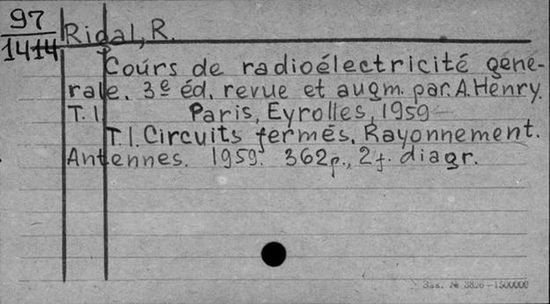 97
1414
Rigal, R.
Cours de radioélectricité géné-
rale. 3e éd. revue et augm. par. A. Henry.
T. I Paris, Eyrolles, 1959-
T. I. Circuits fermés. Rayonnement.
Antennes. 1959. 362p., 2 f. diagr.
Зак. № 3826-1500000